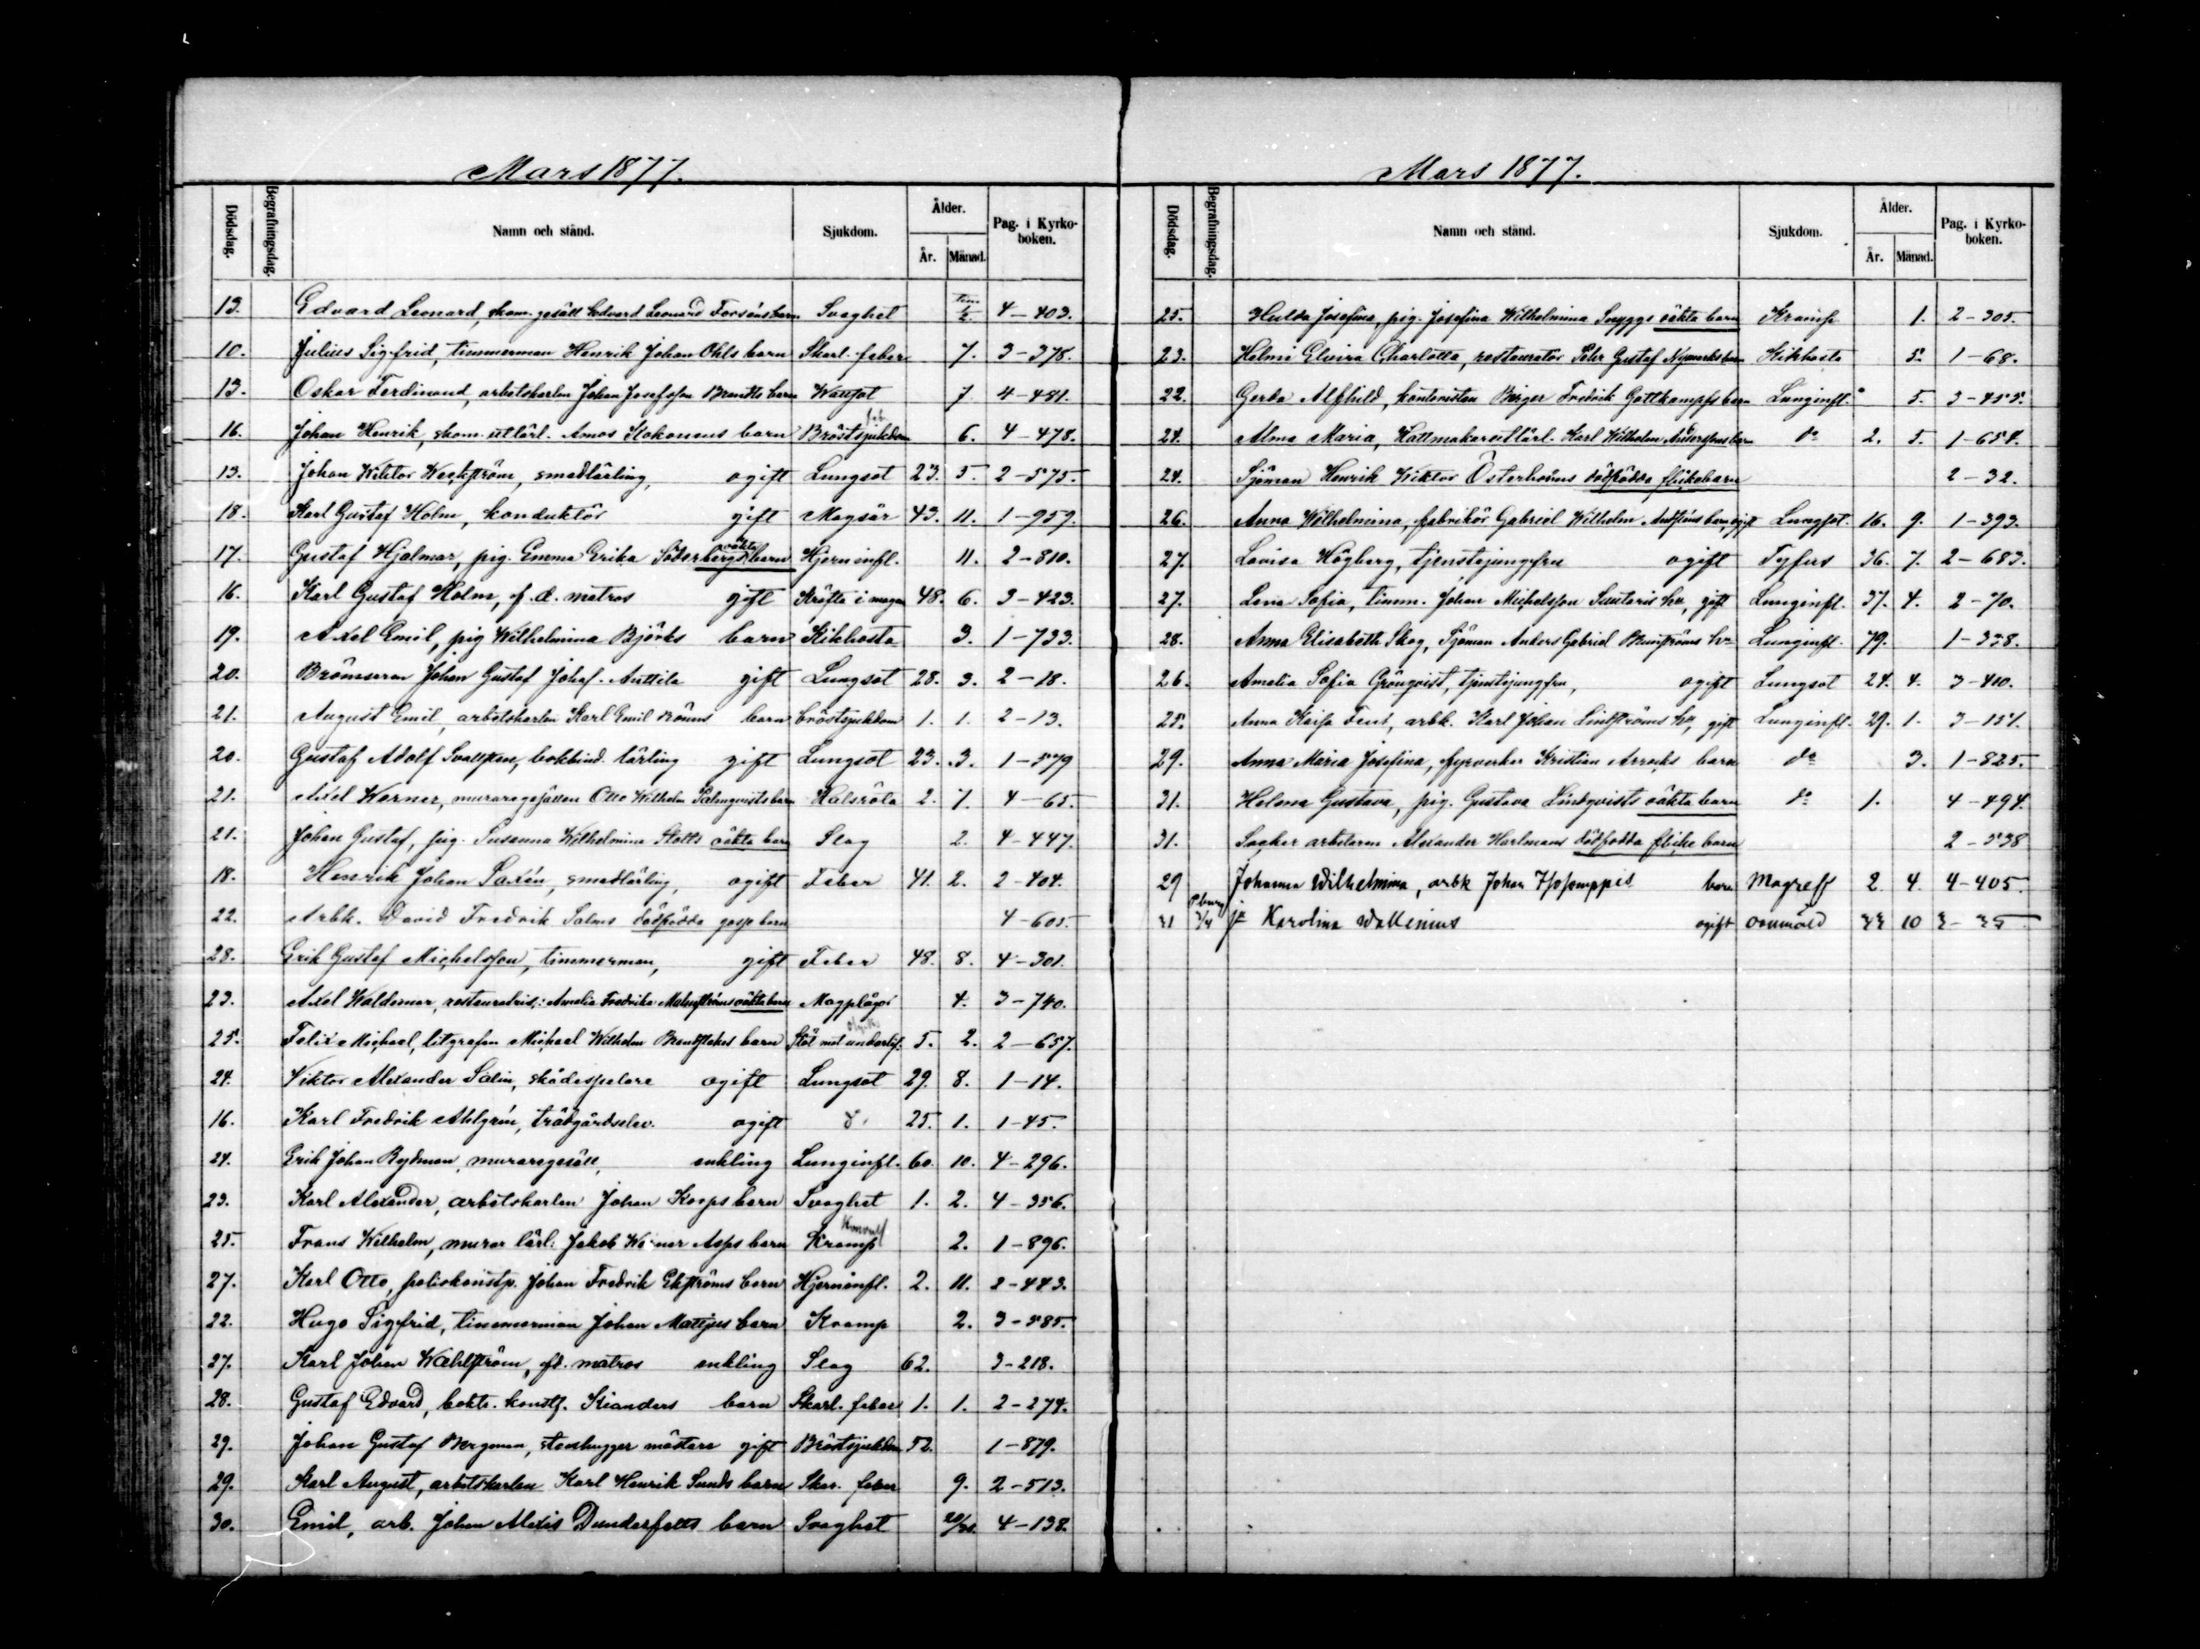 Mars 1877.
Dödsdag. Begrafningsdag. Namn och stånd. Sjukdom. Ålder. År. Månad. Pag. i Kyrkoboken.
13. Edvard Leonard, skom. gesäll Edvard Leonard Forséns barn Svaghet tim ½. 4-403.
10. Julius Sigfrid, timmerman Henrik Johan Ohls barn Skarl. feber 7. 3-378.
13. Oskar Ferdinand, arbetskarlen Johan Josefsson Brandts barn Wattsot 7. 4-481.
16. Johan Henrik, skom. utlärl. Amos Stokonens barn Bröstsjukdom 6. 4-478.
13. Johan Wiktor Weckström, smedlärling, ogift Lungsot 23. 5. 2-575.
18. Karl Gustaf Holm, konduktör gift Magsår 43. 11. 1-959.
17. Gustaf Hjalmar, pig. Emma Erika Söderbergs oäkta barn Hjerninfl. 11. 2-810.
16. Karl Gustaf Holm, f. d. matros gift Kräfta i magen 48. 6. 3-423.
19. Axel Emil, pig Wilhelmina Björks barn Kikhosta 3. 1-733.
20. Johan Gustaf Johsf. Anttila gift Lungsot 28. 3. 2-18.
21. August Emil, arbetskarlen Karl Emil Röms barn bröstsjukdom 1. 1. 2-13.
20. Gustaf Adolf bokbind. lärling gift Lungsot 23. 3. 1-579
21. Axel Werner, muraregesällen Otto Wilhelm Palmqvists barn Halsröta 2. 7. 4-65.
21. Johan Gustaf, pig. Susanna Wilhelmina Stolts oäkta barn Slag 2. 4-447.
18. Henrik Johan Saxén, smedlärling, ogift Feber 41. 2. 2-404.
22. Arbk. David Fredrik Salms dödfödda goss barn 4-605.
28. Erik Gustaf Michelsson, timmerman, gift Feber 48. 8. 4-301.
23. Axel Waldemar, restauratris: Amalia Fredrika Malmströms oäkta barn Magplågor 4. 3-740.
25. Felix Michael, litgrafen Michael Wilhelm barn Stöt mot 5. 2. 2-657.
24. Viktor Alexander Salin, skådespelare ogift Lungsot 29. 8. 1-14.
16. Karl Fredrik Ahlgrén, trädgårdselev. ogift d: 25. 1. 1-45.
24. Erik Johan Rydman, muraregesäll, enkling Lunginfl. 60. 10. 4-296.
23. Karl Alexander, arbetskarlen Johan Korps barn Svaghet 1. 2. 4-356.
25. Frans Wilhelm, murar lärl: Jakob Werner Asps barn Kramp 2. 1-896.
27. Karl Otto, poliskonstp. Johan Fredrik Ekströms barn Hjerninfl. 2. 11. 2-443.
22. Hugo Sigfrid, timmerman Johan Mattjus barn Kramp 2. 3-585.
27. Karl Johan Wahlström, fd. matros enkling Slag 62. 3-218.
28. Gustaf Edvard, boktr. konstf. Kianders barn Skarl. feber 1. 1. 2-274.
29. Johan Gustaf Bergman, stenhugger mästare gift Bröstsjukdom 52. 1-879.
29. Karl August, arbetskarlen Karl Henrik Sunds barn Skar. feber 9. 2-513.
30. Emil, arb. Johan Alexis Dunderfelts barn Svaghet 20/30. 4-138.
Mars 1877.
Dödsdag. Begrafningsdag. Namn och stånd. Sjukdom. Ålder. År. Månad. Pag. i Kyrkoboken.
25. Hulda Josefina, pig. Josefina Wilhelmina Snyggs oäkta barn Kramp 1. 2-305.
23. Helmi Elvira Charlotta, restauratör Pehr Gustaf Nymarks barn Kikhosta 5. 1-68.
22. Gerda Alfhild, kontoristen Birger Fredrik Gottkampfs barn Lunginfl. 5. 3-455.
24. Alma Maria, Hattmakareutlärl. Karl Wilhelm Anderssons barn do 2. 5. 1-654.
24. Sjöman Henrik Wiktor Österholms dödfödda flickebarn 2-32.
26. Anna Wilhelmina, fabrikör Gabriel Wilhelm barn, ogift Lungsot. 16. 9. 1-393.
27. Lovisa Högberg, tjenstejungfru ogift Tyfus 36. 7. 2-683.
27. Lena Sofia, timm. Johan Michelsson Suntaris hu, gift Lunginfl. 37. 4. 2-70.
28. Anna Elisabeth Skog, Sjöman Anders Gabriel hu Lunginfl. 79. 1-338.
26. Amalia Sofia Grönqvist, tjenstejungfru, ogift Lungsot 24. 4. 3-410.
25. Anna Kaisa arbk. Karl Johan Lindströms hu, gift Lunginfl. 29. 1. 3-151.
29. Anna Maria Josefina, fyrverker Kristian barn do 3. 1-825.
31. Helena Gustava, pig. Gustava Lindqvists oäkta barn do 1. 4-494.
31. Socker arbetaren Alexander Harlmans dödfödda flicke barn 2-538
29 Johanna Wilhelmina, arbk Johan barn Magreff 2. 4. 4-405.
31 P.burg 3/4 jfr Karolina Wallenius ogift 33 10 3-35